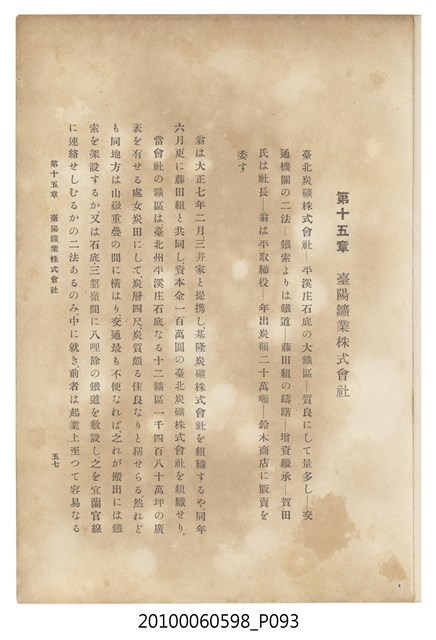 第十五章　臺陽鑛業株式會社
臺北炭礦株式會社―平溪庄石底の大鑛區―質良にして量多し―交
通機關の二法―鐵索よりは鐵道―藤田組の躊躇―增資繼承―賀田
氏は社長―翁は平取締役―年出炭額二十萬噸―鈴木商店に販賣を
委す
翁は大正七年二月、三井家と提携し、基隆炭礦株式會社を組織するや、同年
六月更に藤田組と共同し、資本金一百萬圓の臺北炭礦株式會社を組織せり。
當會社の鑛區は臺北州平溪庄石底なる十二鑛區一千四百八十萬坪の廣
袤を有せる處女炭田にして炭層四尺、炭質頗る佳良なりと稱せらる、然れど
も同地方は山嶽重疊の間に橫はり交通最も不便なれば、之れが搬出には鐵
索を架設するか、又は石底、三貂嶺間に八哩餘の鐵道を敷設し、之を宜蘭官線
に連絡せしむるかの二法あるのみ、中に就き、前者は起業上至つて容易なる
第十五章　臺陽鑛業株式會社
五七
20100060598_P093